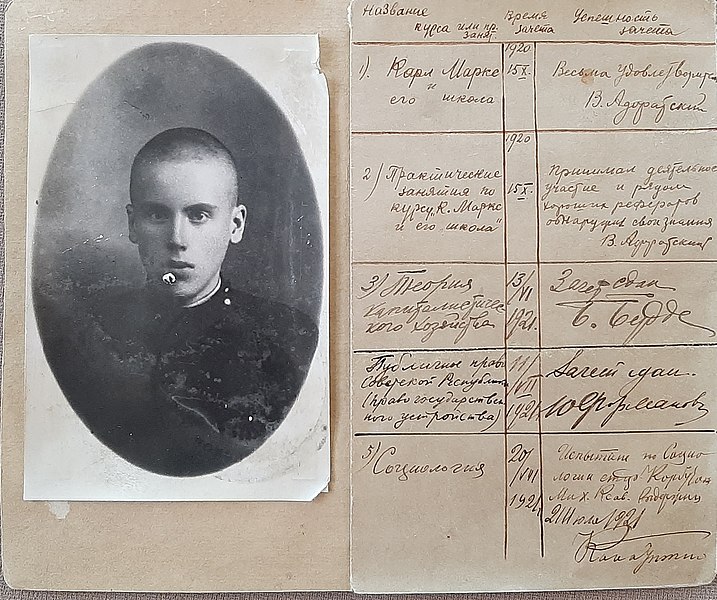 Название
курса или пр.
занят.
Время
зачета
Успешность
зачета
1). Карл Маркс
и
его школа
1920
15 X.
Весьма удовлетворит
В. Адоратский
2) Практические
занятия по
курсу „К. Маркс
и его школа"
1920
15 X.
Принимал деятельное
участие и рядом
хороших рефератов
обнаружил свои знания
В. Адоратский
3) Теория
капиталистичес
кого хозяйства
13/
VI
1921.
Зачет сдан
Публичное право
Советской Республики
(право государствен
ного устройства)
11/
VII
1921.
Зачет сдан.
5) Социология
20/
VII
1921.
Испытание по Социо
логии студ.
Мих. Ксав.
21 Июля 1921